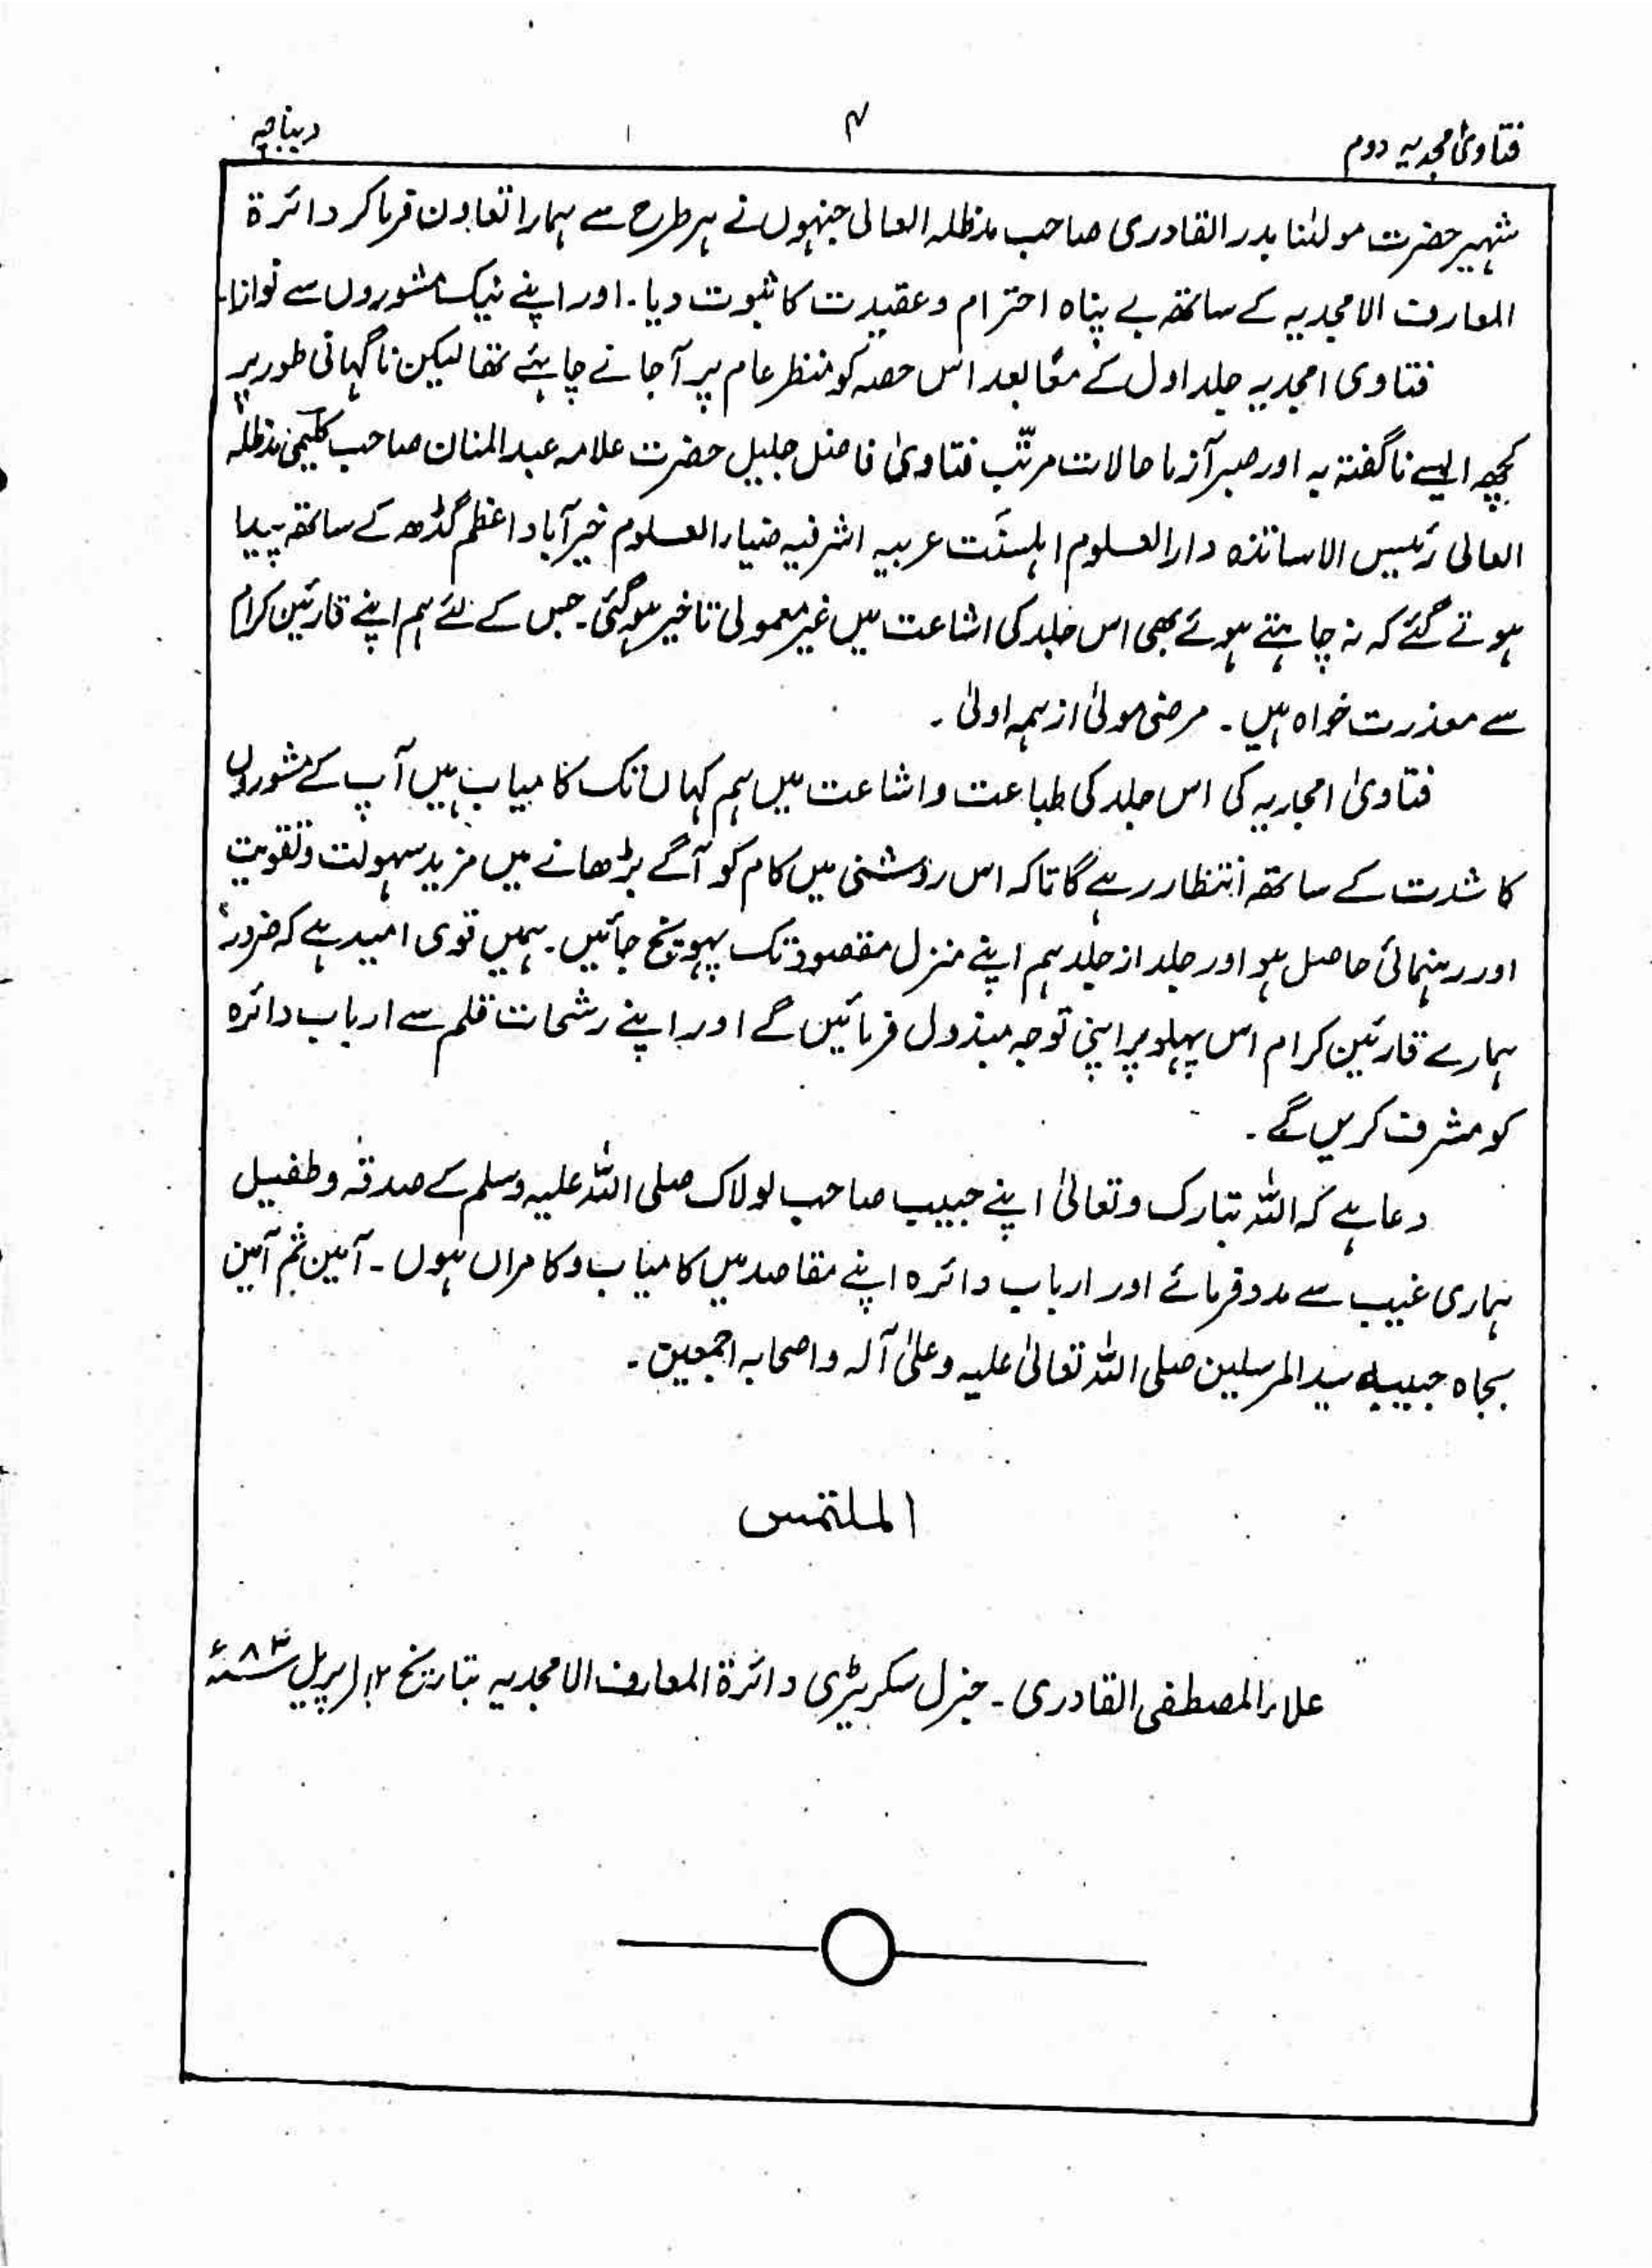 فتاویٰ امجدیہ دوم ۴ دیباچہ
شہیر حضرت مولٰنا بدر القادری صاحب مدظلہ العالی جنہوں نے ہر طرح سے ہمارا تعاون فرما کر دائرۃ
المعارف الامجدیہ کے ساتھ بے پناہ احترام و عقیدت کا ثبوت دیا۔ اور اپنے نیک مشوروں سے نوازا۔
فتاوی امجدیہ جلد اول کے معًا بعد اس حصہ کو منظر عام پر آجانے چاہئے تھا لیکن ناگہانی طور پر
کچھ ایسے ناگفتہ بہ اور صبر آزما حالات مرتّب فتاویٰ فاضل جلیل حضرت علامہ عبدالمنان صاحب کلیمی مدظلہ
العالی رئیس الاساتذہ دارالعلوم اہلسنّت عربیہ اشرفیہ ضیاء العلوم خیرآباد اعظم گڈھ کے ساتھ پیدا
ہوتے گئے کہ نہ چاہتے ہوئے بھی اس جلد کی اشاعت میں غیر معمولی تاخیر ہو گئی۔ جس کے لئے ہم اپنے قارئین کرام
سے معذرت خواہ ہیں۔ مرضی مولیٰ از ہمہ اولیٰ۔
فتاویٰ امجدیہ کی اس جلد کی طباعت و اشاعت میں ہم کہاں تک کامیاب ہیں آپ کے مشوروں
کا شدت کے ساتھ انتظار رہے گا تاکہ اس روشنی میں کام کو آگے بڑھانے میں مزید سہولت و تقویت
اور رہنمائی حاصل ہو اور جلد از جلد ہم اپنے منزل مقصود تک پہونچ جائیں۔ ہمیں قوی امید ہے کہ ضرور
ہمارے قارئین کرام اس پہلو پر اپنی توجہ مبذول فرمائیں گے اور اپنے رشحات قلم سے ارباب دائرہ
کو مشرف کریں گے۔
دعا ہے کہ اللہ تبارک و تعالیٰ اپنے حبیب صاحب لولاک صلی اللہ علیہ وسلم کے صدقہ و طفیل
ہماری غیب سے مدد فرمائے اور ارباب دائرہ اپنے مقاصد میں کامیاب و کامراں ہوں۔ آمین ثم آمین
بجاہ حبیبہ سید المرسلین صلی اللہ تعالیٰ علیہ وعلیٰ آلہ واصحابہ اجمعین۔
الملتمس
علاء المصطفی القادری۔ جنرل سکریٹری دائرۃ المعارف الامجدیہ بتاریخ ۱۲ اپریل ۸۳ء